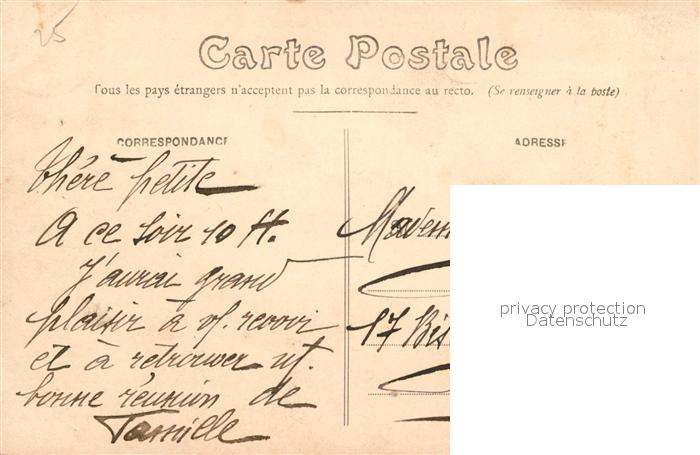 25
Carte Postale
Tous les pays étrangers n'acceptent pas la correspondance au recto. (Se renseigner à la poste)
CORRESPONDANCE
ADRESSE
Chère petite
A ce soir 10 H.
J'aurai grand
plaisir à vs. revoir
et à retrouver nt.
bonne réunion de
Famille
17 Bis
privacy protection
Datenschutz